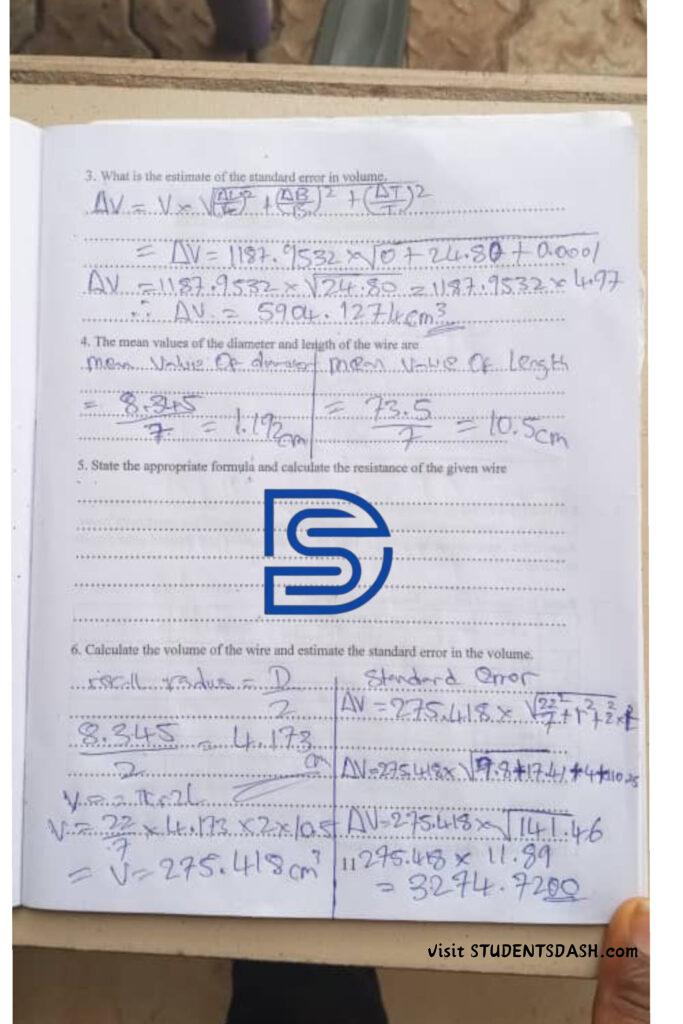 3. What is the estimate of the standard error in volume.
ΔV = V × √(ΔL/L)² + (ΔB/B)² + (ΔT/T)²
= ΔV = 1187.9532 × √0 + 24.80 + 0.0001
ΔV = 1187.9532 × √24.80 = 1187.9532 × 4.97
∴ ΔV = 5904.1274cm³
4. The mean values of the diameter and length of the wire are
mean value of diameter
= 8.345/7 = 1.192cm
mean value of Length
= 73.5/7 = 10.5cm
5. State the appropriate formula and calculate the resistance of the given wire
6. Calculate the volume of the wire and estimate the standard error in the volume.
radius = D/2
8.345/2 = 4.173 cm
V = 22/7 × 4.173 × 2 × 10.5
= V = 275.418cm³
Standard error
ΔV = 275.418 ×
ΔV = 275.418 × √9.8 + 17.41 + 4 +
ΔV = 275.418 × √141.46
275.418 × 11.89
= 3274.7200
11
DS
visit STUDENTSDASH.com